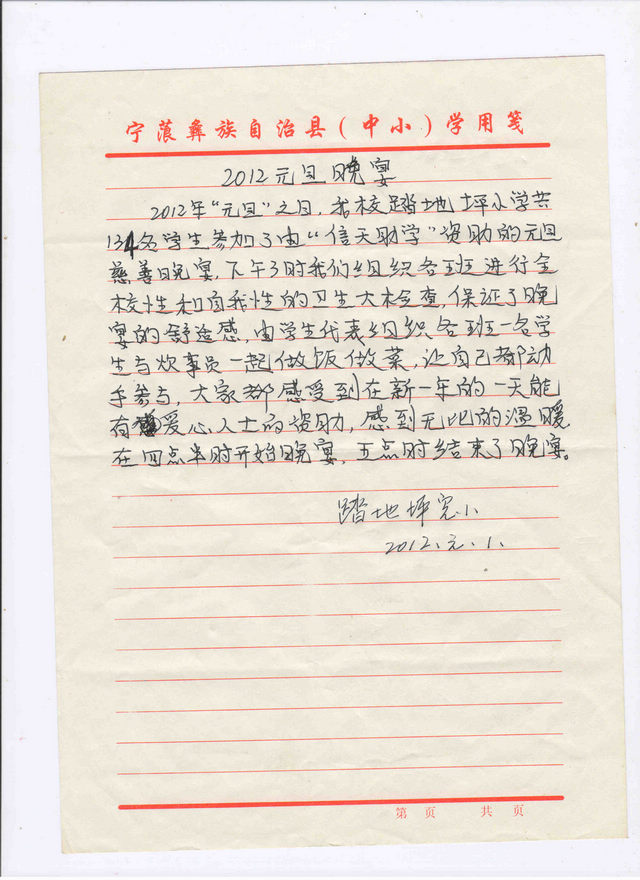 宁蒗彝族自治县(中小)学用笺
2012元旦晚宴
2012年“元旦”之日,我校踏地坪小学共
134名学生参加了由“信天助学”资助的元旦
慈善晚宴,下午3时我们组织各班进行全
校性和自我性的卫生大检查,保证了晚
宴的舒适感,由学生代表组织各班一名学
生与炊事员一起做饭做菜,让自己都动
手参与,大家都感受到在新一年的一天能
有爱心人士的资助,感到无比的温暖
在四点半时开始晚宴,五点时结束了晚宴。
踏地坪完小
2012.元.1.
第 页 共 页